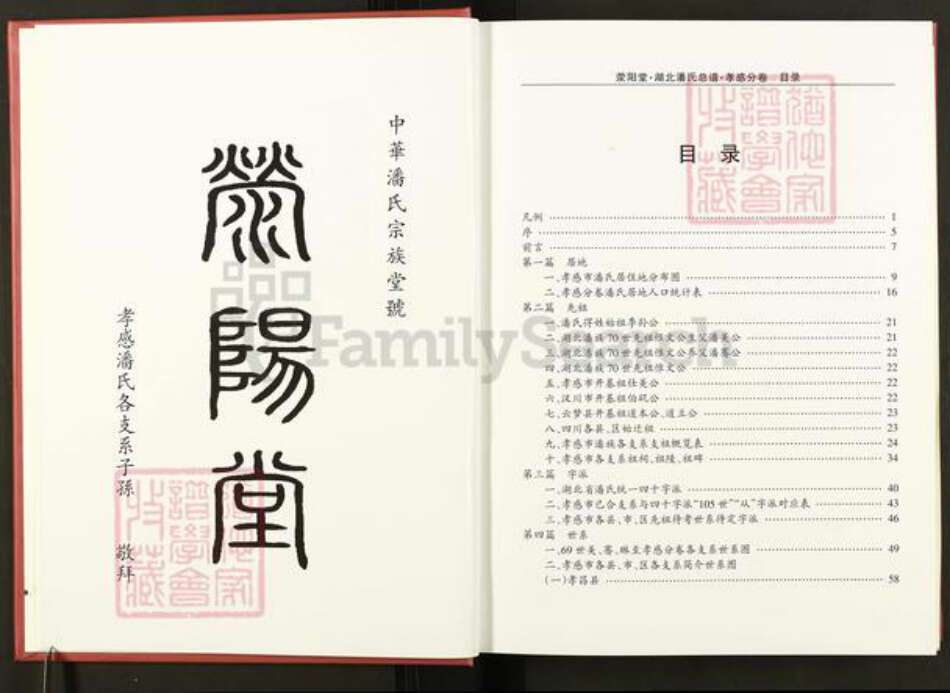 中華潘氏宗族堂號
滎陽堂
孝感潘氏各支系子孫 敬拜
FamilySearch
荥阳堂·湖北潘氏总谱·孝感分卷 目录
目 录
凡例 1
序 5
前言 7
第一篇 居地
一、孝感市潘氏居住地分布图 9
二、孝感分卷潘氏居地人口统计表 16
第二篇 先祖
一、潘氏得姓始祖季孙公 21
二、湖北潘族70世先祖惟文公生父潘美公 21
三、湖北潘族70世先祖惟文公养父潘鶱公 22
四、湖北潘族70世先祖惟文公 22
五、孝感市开基祖仕美公 22
六、汉川市开基祖伯玑公 22
七、云梦县开基祖道本公、道立公 23
八、四川各县、区始迁祖 23
九、孝感市潘族各支系支祖概览表 24
十、孝感市各支系祖祠、祖陵、祖碑 34
第三篇 字派
一、湖北省潘氏统一四十字派 40
二、孝感市已合支系与四十字派“105世”“从”字派对应表 43
三、孝感市各县、市、区先祖待考世系待定字派 46
第四篇 世系
一、69世美、鶱、琳至孝感分卷各支系世系图 49
二、孝感市各县、市、区各支系简介世系图
(一)孝昌县 58